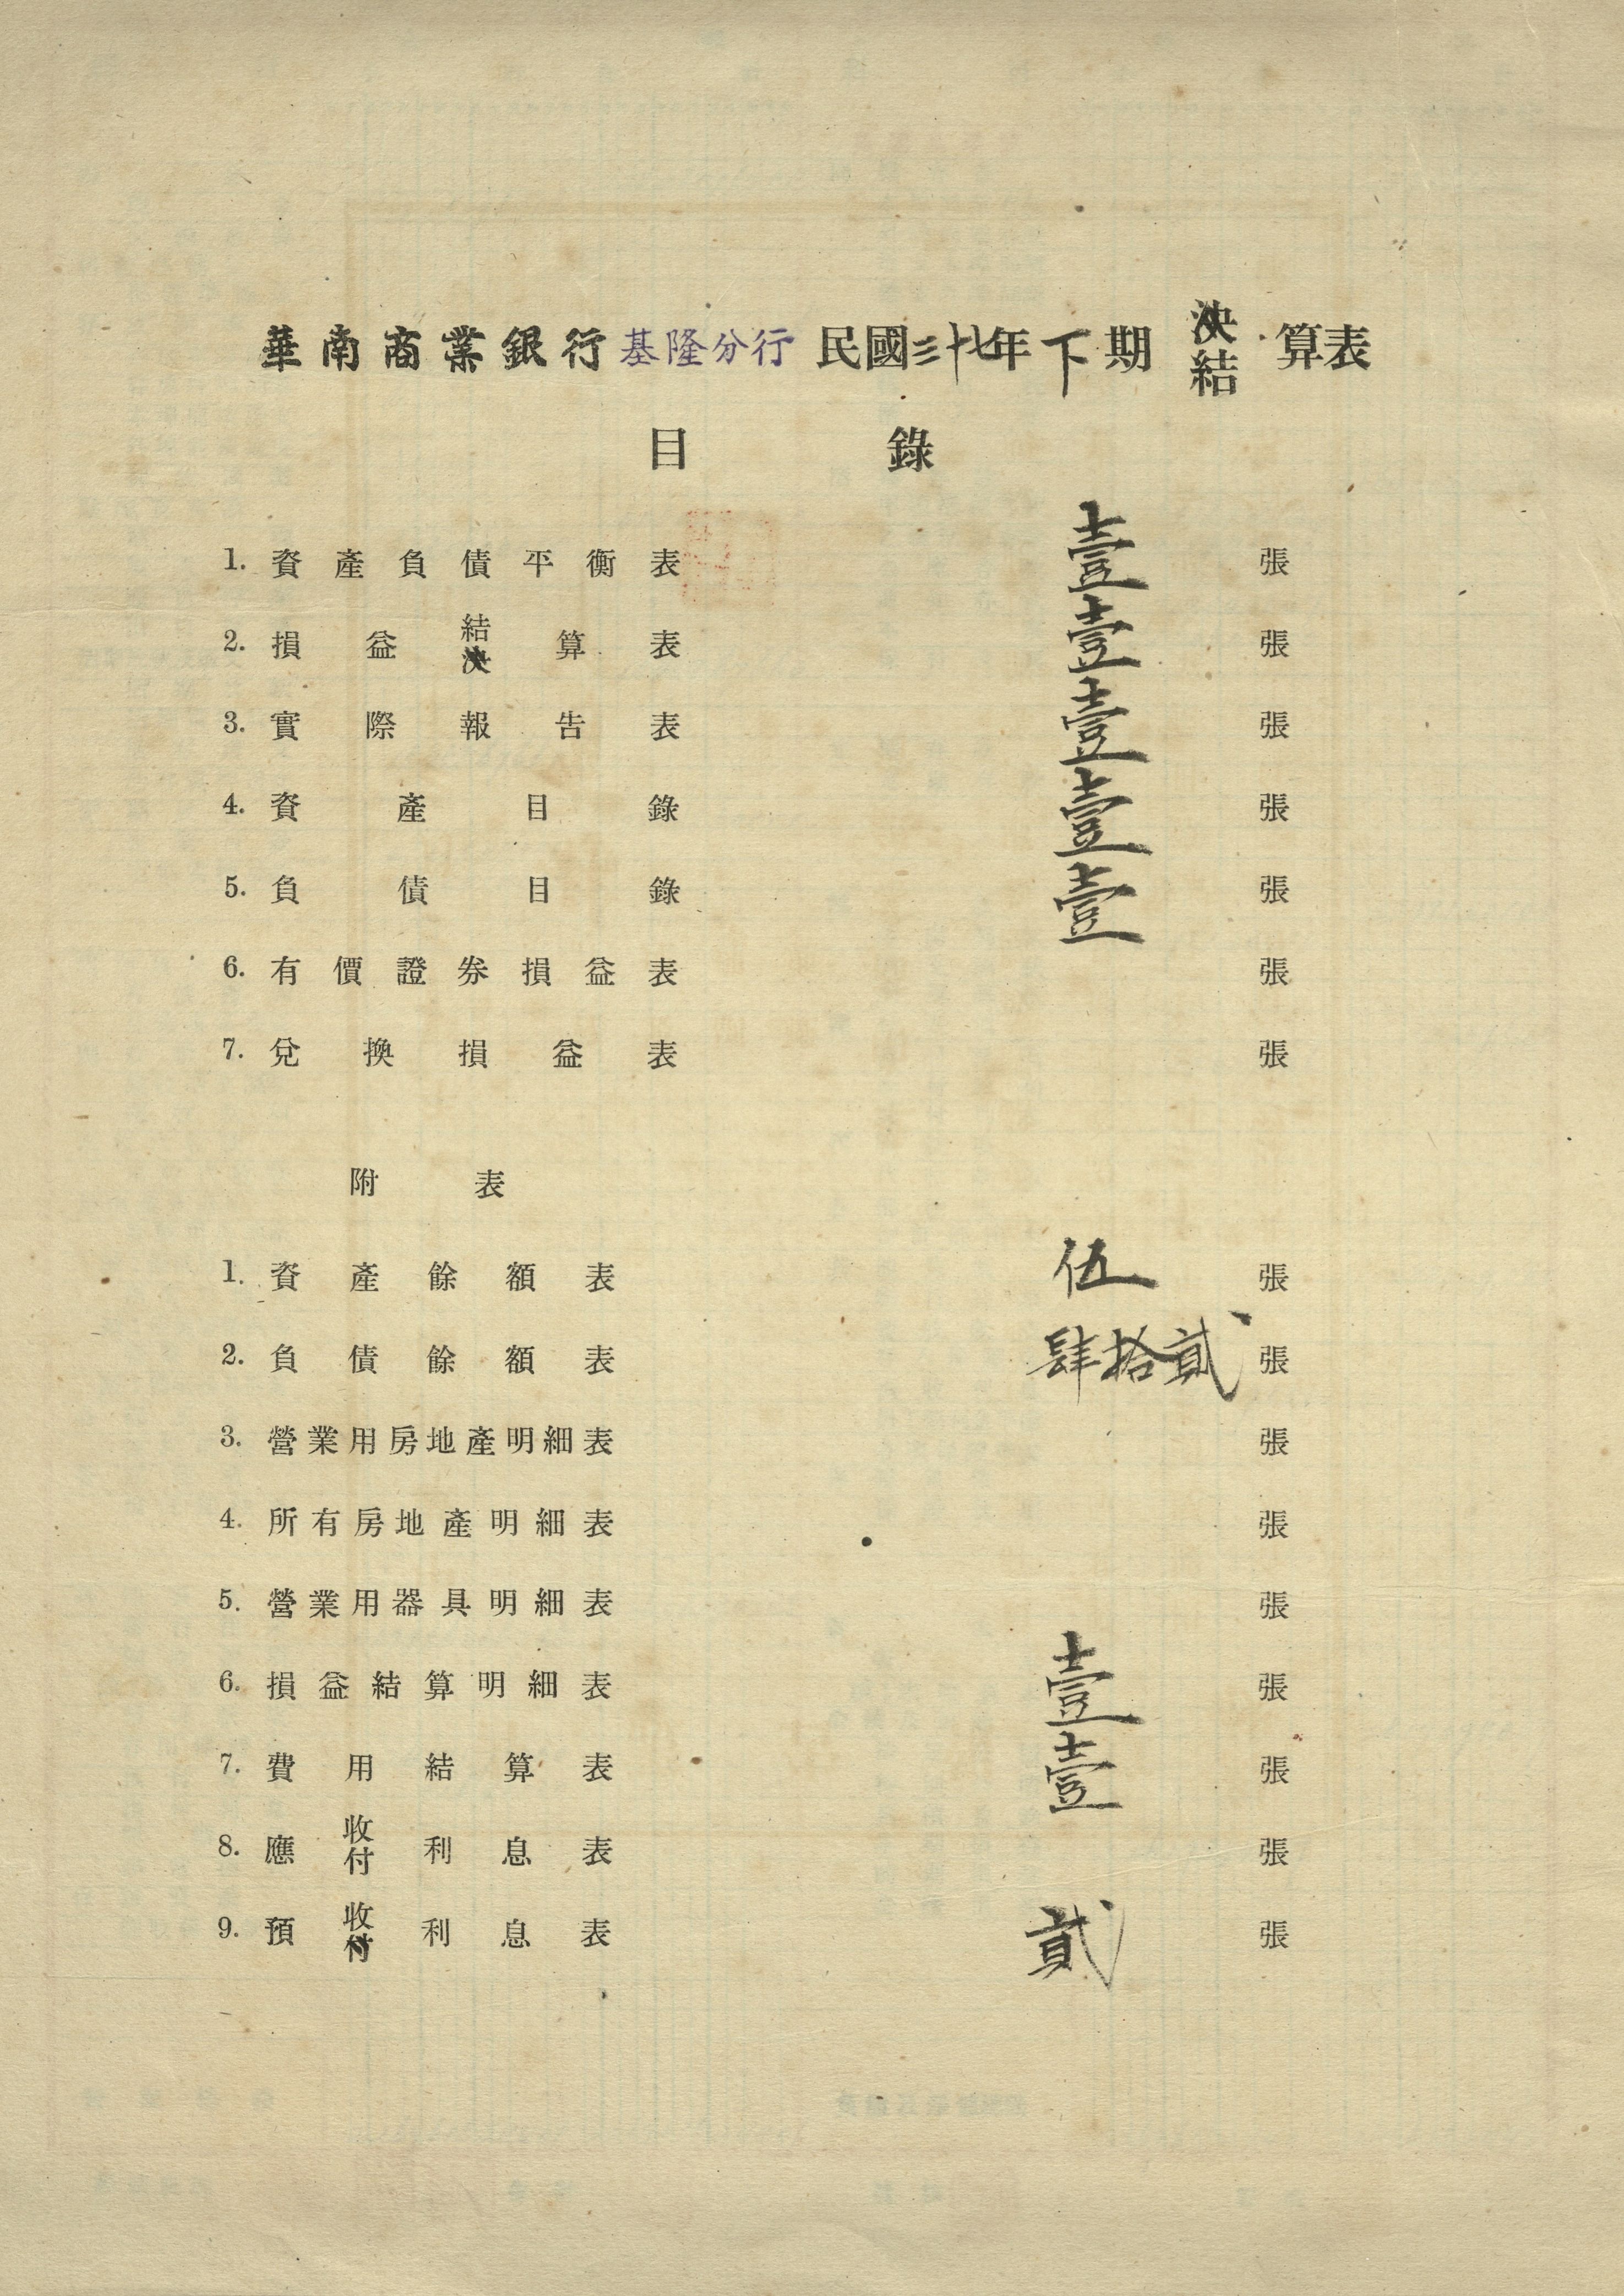 華南商業銀行基隆分行 民國三十七年下期 決結 算表
目錄
1. 資產負債平衡表 壹 張
2. 損益結決算表 壹 張
3. 實際報告表 壹 張
4. 資產目錄 壹 張
5. 負債目錄 壹 張
6. 有價證券損益表 張
7. 兌換損益表 張
附表
1. 資產餘額表 伍 張
2. 負債餘額表 肆拾貳 張
3. 營業用房地產明細表 張
4. 所有房地產明細表 張
5. 營業用器具明細表 張
6. 損益結算明細表 壹 張
7. 費用結算表 壹 張
8. 應收付利息表 張
9. 預收付利息表 貳 張